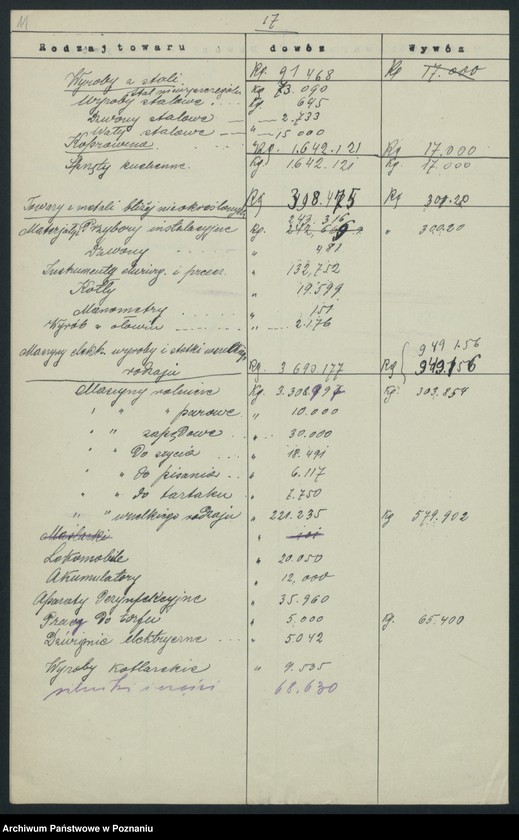 17
Rodzaj towaru dowóz Wywóz
Wyroby z stali Kg. 91 468 Kg 17.000
Stal niewyszczególn. Kg 73.090
Wyroby stalowe Kg. 645
Dzwony stalowe — " 2.733
Waty stalowe — " — 15 000
Koprowina. Kg. 1.642.121 Kg 17.000
Sprzęty kuchenne. Kg. 1.642.121 Kg. 17.000
Towary z metali bliżej nieokreślonych Kg 398.475 Kg 300.20
243.316
Materjały i Przybory instalacyjne Kg. " 300.20
Dzwony " 481
Instrumenta chirurg. i precez. " 132,752
Kotły " 19.599
Manometry " 151
Wyrób z ołowiu " 2.176
949 1.56
Maszyny elekt. wyroby i statki wszelkiego
rodzaju Kg. 3 690.177 Kg 949.156
Maszyny rolnicze Kg. 3.308.997 Kg. 303.854
" " parowe " 10.000
" " zapędowe " 30.000
" " Do szycia " 18.491
" " do pisania " 6.117
" " do tartaku " 2.750
" " wszelkiego rodzaju " 221.235 Kg 579.902
Maślarki
Lokomobile " 20.050
Akumulatory " 12,000
Aparaty Dezynfekcyjne " 35.960
Prasy Do torfu " 5.000 Kg. 65.400
Dźwignie elektryczne " 5042
Wyroby kotlarskie " 9.535
silniki i części 68.630
Archiwum Państwowe w Poznaniu
www.szukajwarchiwach.gov.pl